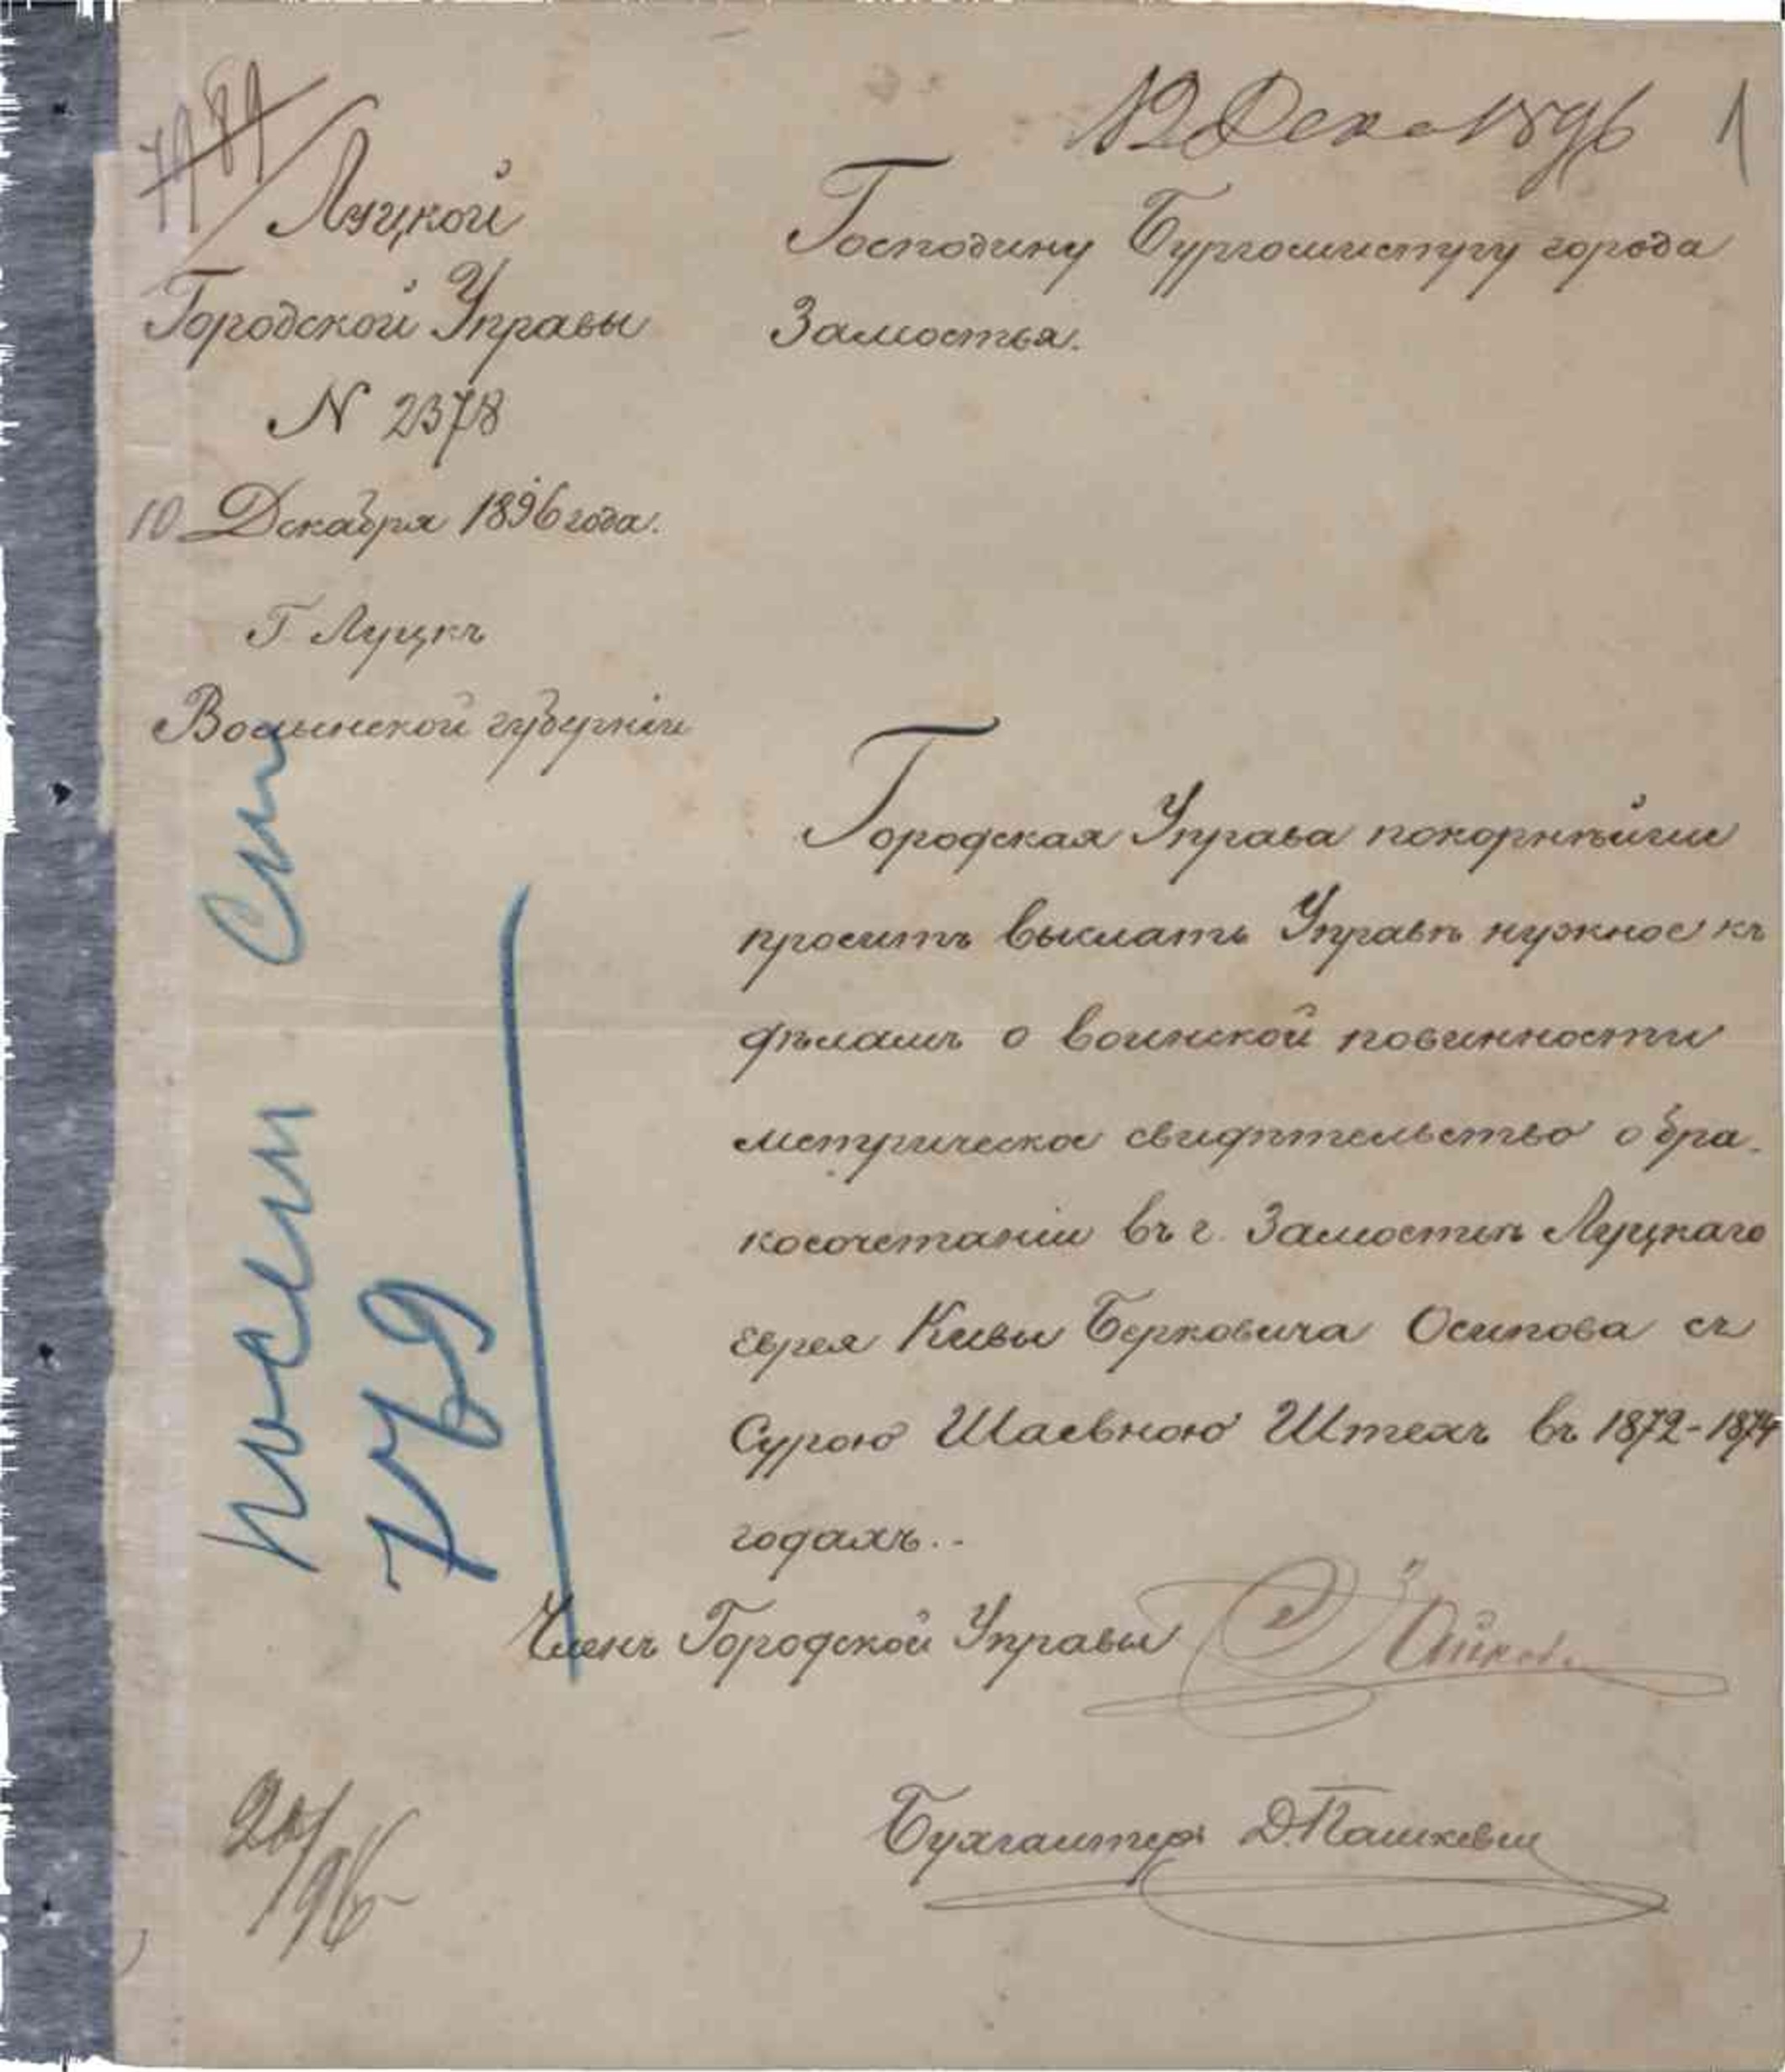 12 Дек 1896 1
7989
Луцкой
Городской Управы
N 2378
10 Декабря 1896 года.
Г Луцкъ
Волынской губерніи
Господину Бургомистру города
Замостья.
Городская Управа покорнѣйше
проситъ выслать Управѣ нужное къ
дѣламъ о воинской повинности
метрическое свидѣтельство о бра-
косочетаніи въ г. Замостьѣ Луцкаго
еврея Кивы Берковича Осипова съ
Сурою Шаевною Штехъ въ 1872-1874
годахъ..
Членъ Городской Управы
Бухгалтеръ Д. Пашкевич
96